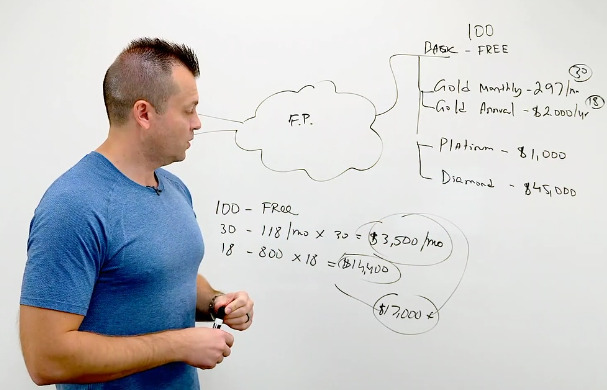 100
BASIC - FREE
30
Gold Monthly - 297/mo
18
Gold Annual - $2000/yr
F.P.
Platinum - $1,000
Diamond - $45,000
100 - FREE
30 - 118/mo x 30 = $3,500/mo
18 - 800 x 18 = $14,400
$17,000 x